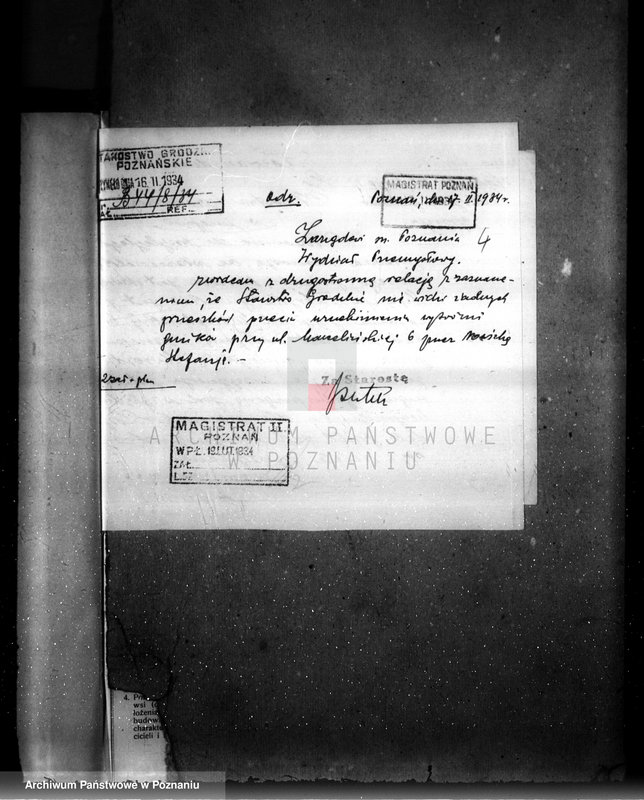 STAROSTWO GRODZ
POZNAŃSKIE
DNIA 16 II 1934
B44/8/34
REF.
odr.
MAGISTRAT POZNAŃ
Poznań, dn. 17 II. 1934 r.
Zarządowi m. Poznania 4
Wydział Przemysłowy.
zwracam z drugostronną relacją z zaznacze-
niem, że Starostwo Grodzkie nie widzi żadnych
przeszkód uruchomieniu wytwórni
przy ul. 6 przez
Stefanję. —
Za Starostę
MAGISTRAT II
POZNAŃ
WPŁ. 19 LUT. 1934
ZAŁ.
L.DZ.
ARCHIWUM PAŃSTWOWE
W POZNANIU
4. 
wsi
łożeni
budow
charakte
cicieli i
Archiwum Państwowe w Poznaniu